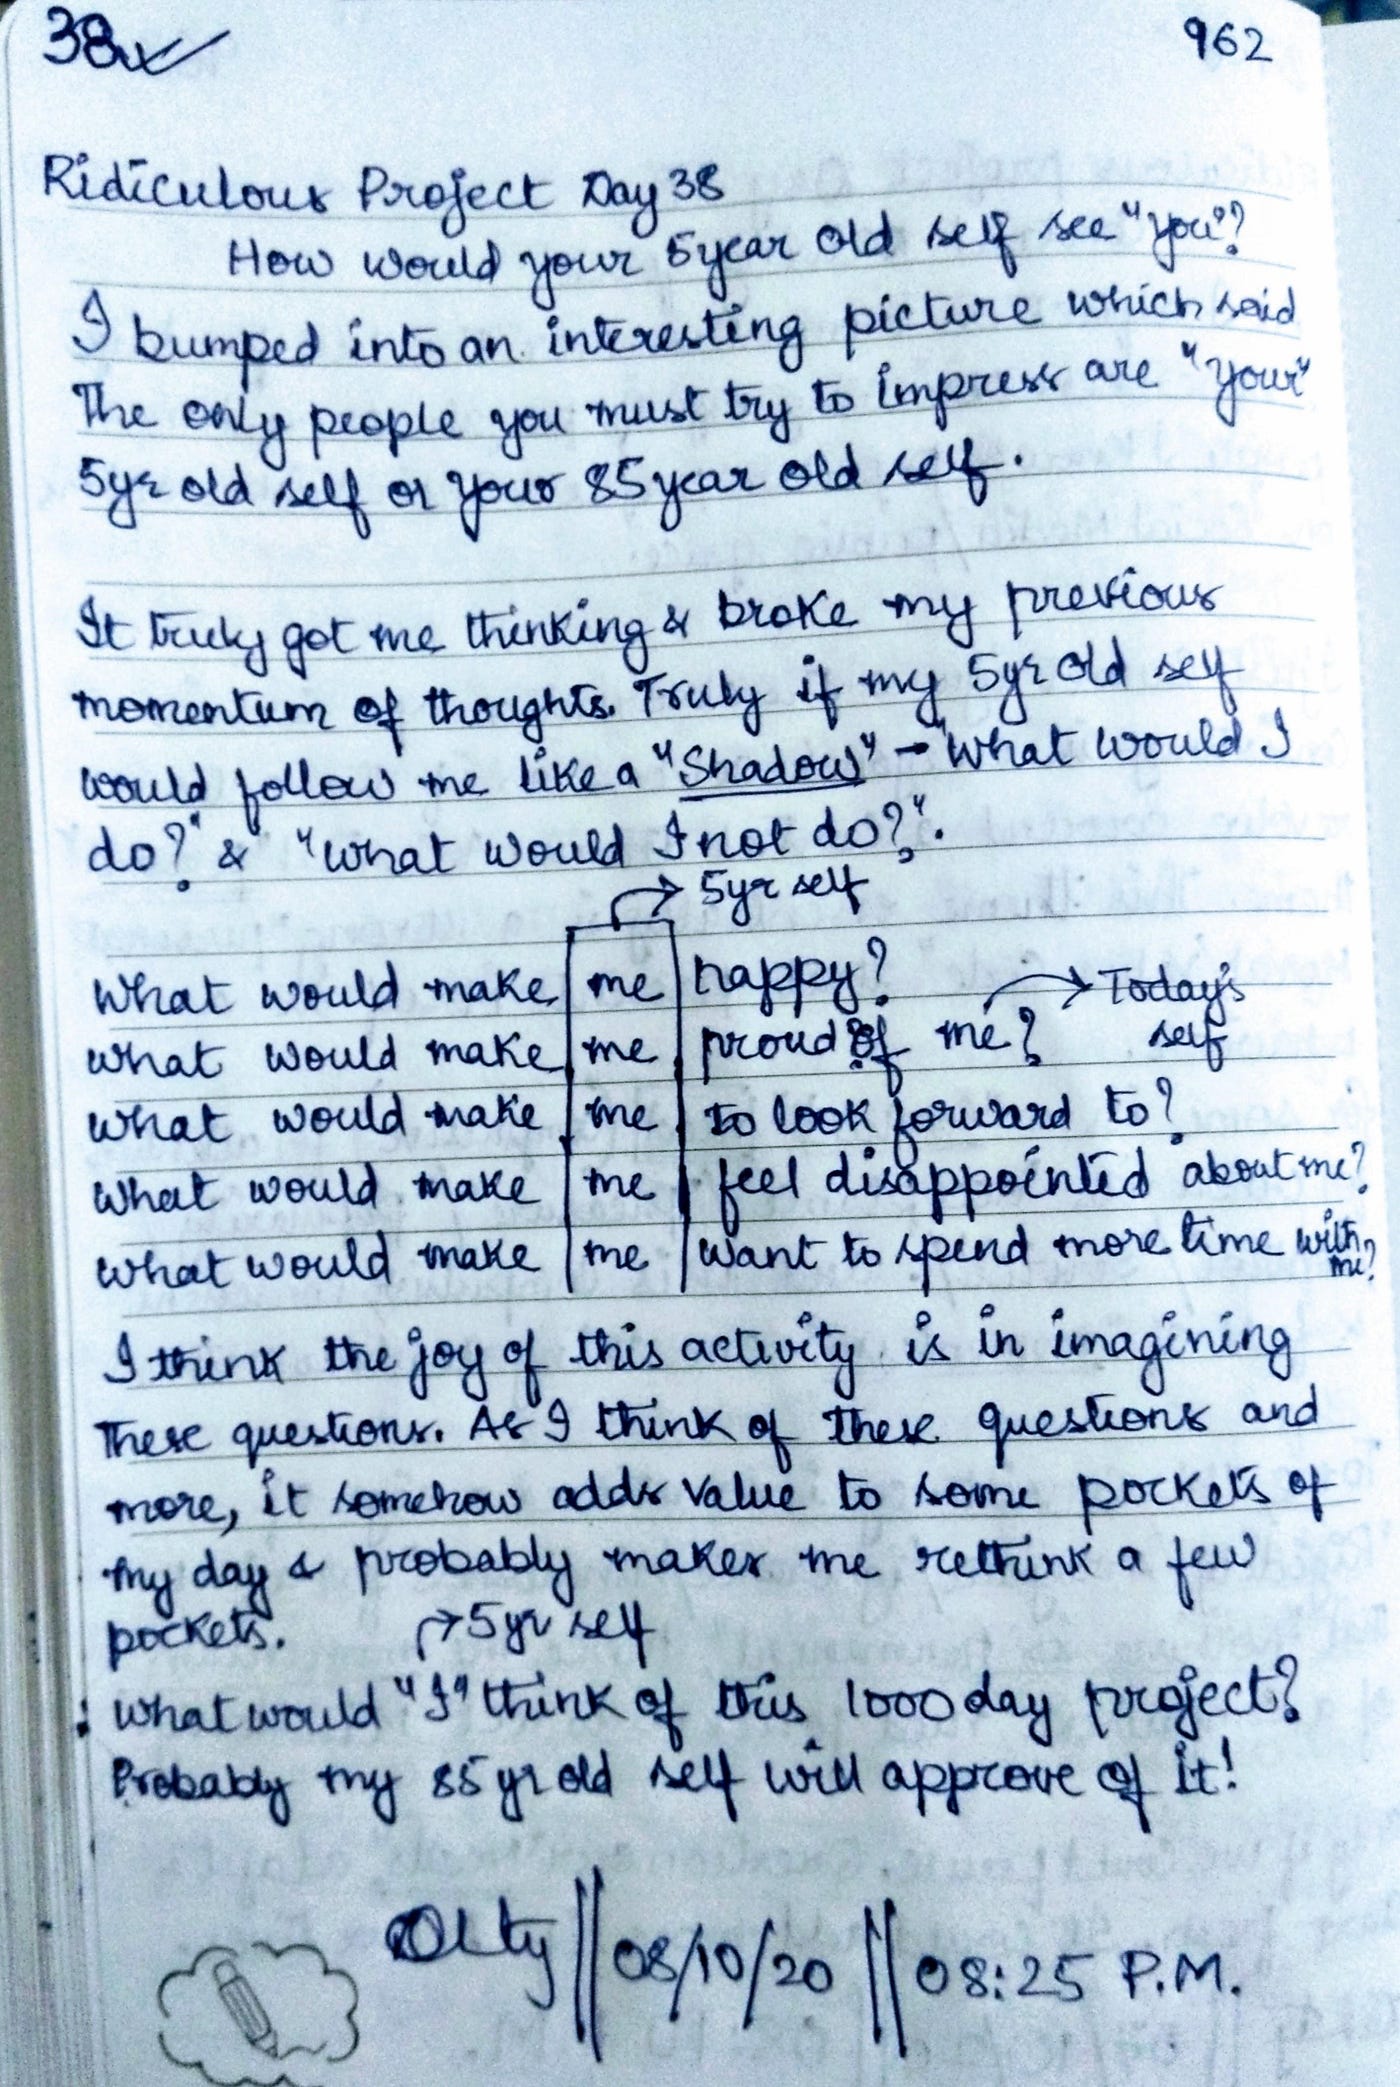 38
962
Ridiculous Project Day 38
How would your 5year old self see "you"?
I bumped into an interesting picture which said
The only people you must try to impress are "your"
5yr old self or your 85year old self.
It truly got me thinking & broke my previous
momentum of thoughts. Truly if my 5yr old self
would follow me like a "Shadow" - "What would I
do?" & "what would I not do?".
5yr self
What would make me happy?
Today's
what would make me proud of me? self
what would make me to look forward to?
what would make me feel disappointed about me?
what would make me want to spend more time with
me?
I think the joy of this activity is in imagining
these questions. As I think of these questions and
more, it somehow adds value to some pockets of
my day & probably makes me rethink a few
pockets.
5yr self
what would "I" think of this 1000 day project?
Probably my 85 yr old self will approve of it!
|| 08/10/20 || 08:25 P.M.